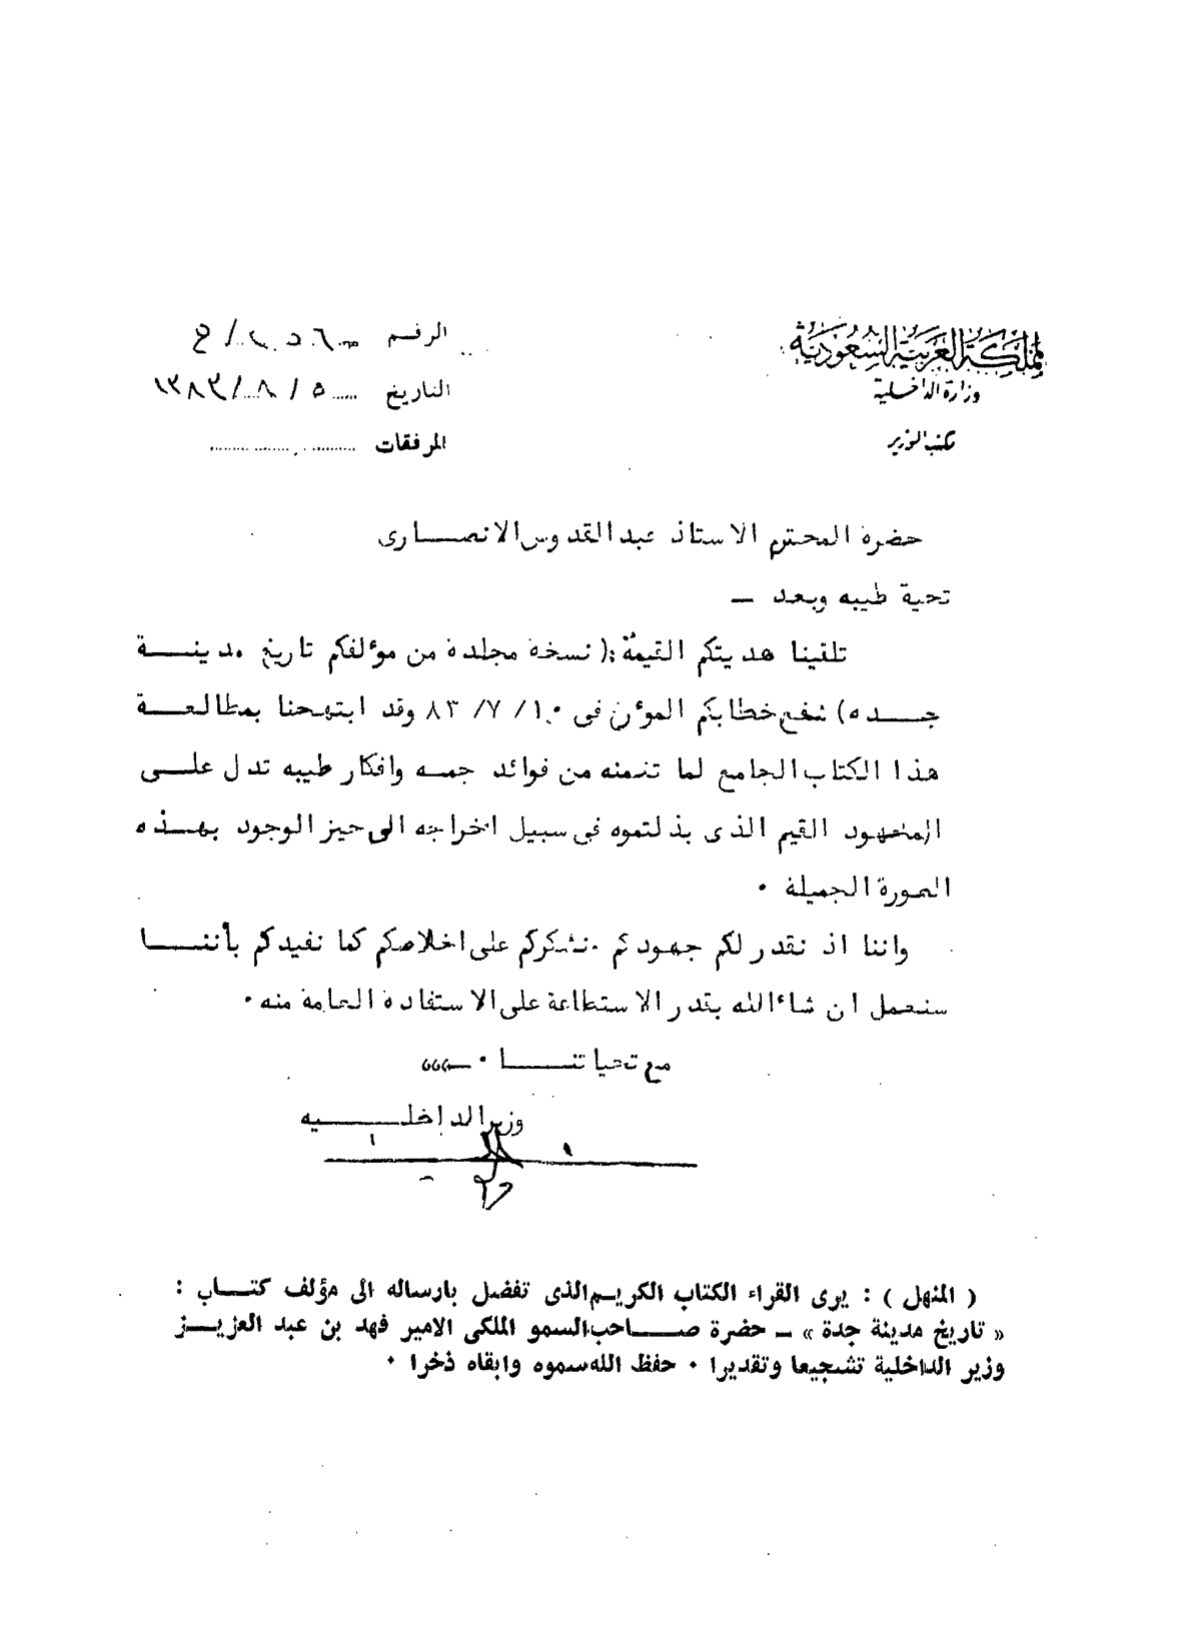 المملكة العربية السعودية
وزارة الداخلية
مكتب الوزير
الرقم
التاريخ ٥ / ٨ / ١٣٨٣
المرفقات
حضرة المحترم الاستاذ عبد القدوس الانصارى
تحية طيبه وبعد ــ
تلقينا هديتكم القيمة :( نسخة مجلدة من موٴلفكم تاريخ مدينة
جده) شفع خطابكم الموٴرخ فى ١٠ /٧ /٨٣ وقد ابتهجنا بمطالعة
هذا الكتاب الجامع لما تضمنه من فوائد جمه وافكار طيبه تدل على
المجهود القيم الذى بذلتموه فى سبيل اخراجه الى حيز الوجود بهذه
الصورة الجميلة ٠
واننا اذ نقدر لكم جهودكم ونشكركم على اخلاصكم كما نفيدكم بأننا
سنعمل ان شاء الله بقدر الاستطاعة على الاستفادة العامة منه ٠
مع تحياتنا ٠
وزير الداخليه
( المنهل ) : يرى القراء الكتاب الكريم الذى تفضل بارساله الى مؤلف كتاب :
« تاريخ مدينة جدة » ــ حضرة صاحب السمو الملكى الامير فهد بن عبد العزيز
وزير الداخلية تشجيعا وتقديرا ٠ حفظ الله سموه وابقاه ذخرا ٠